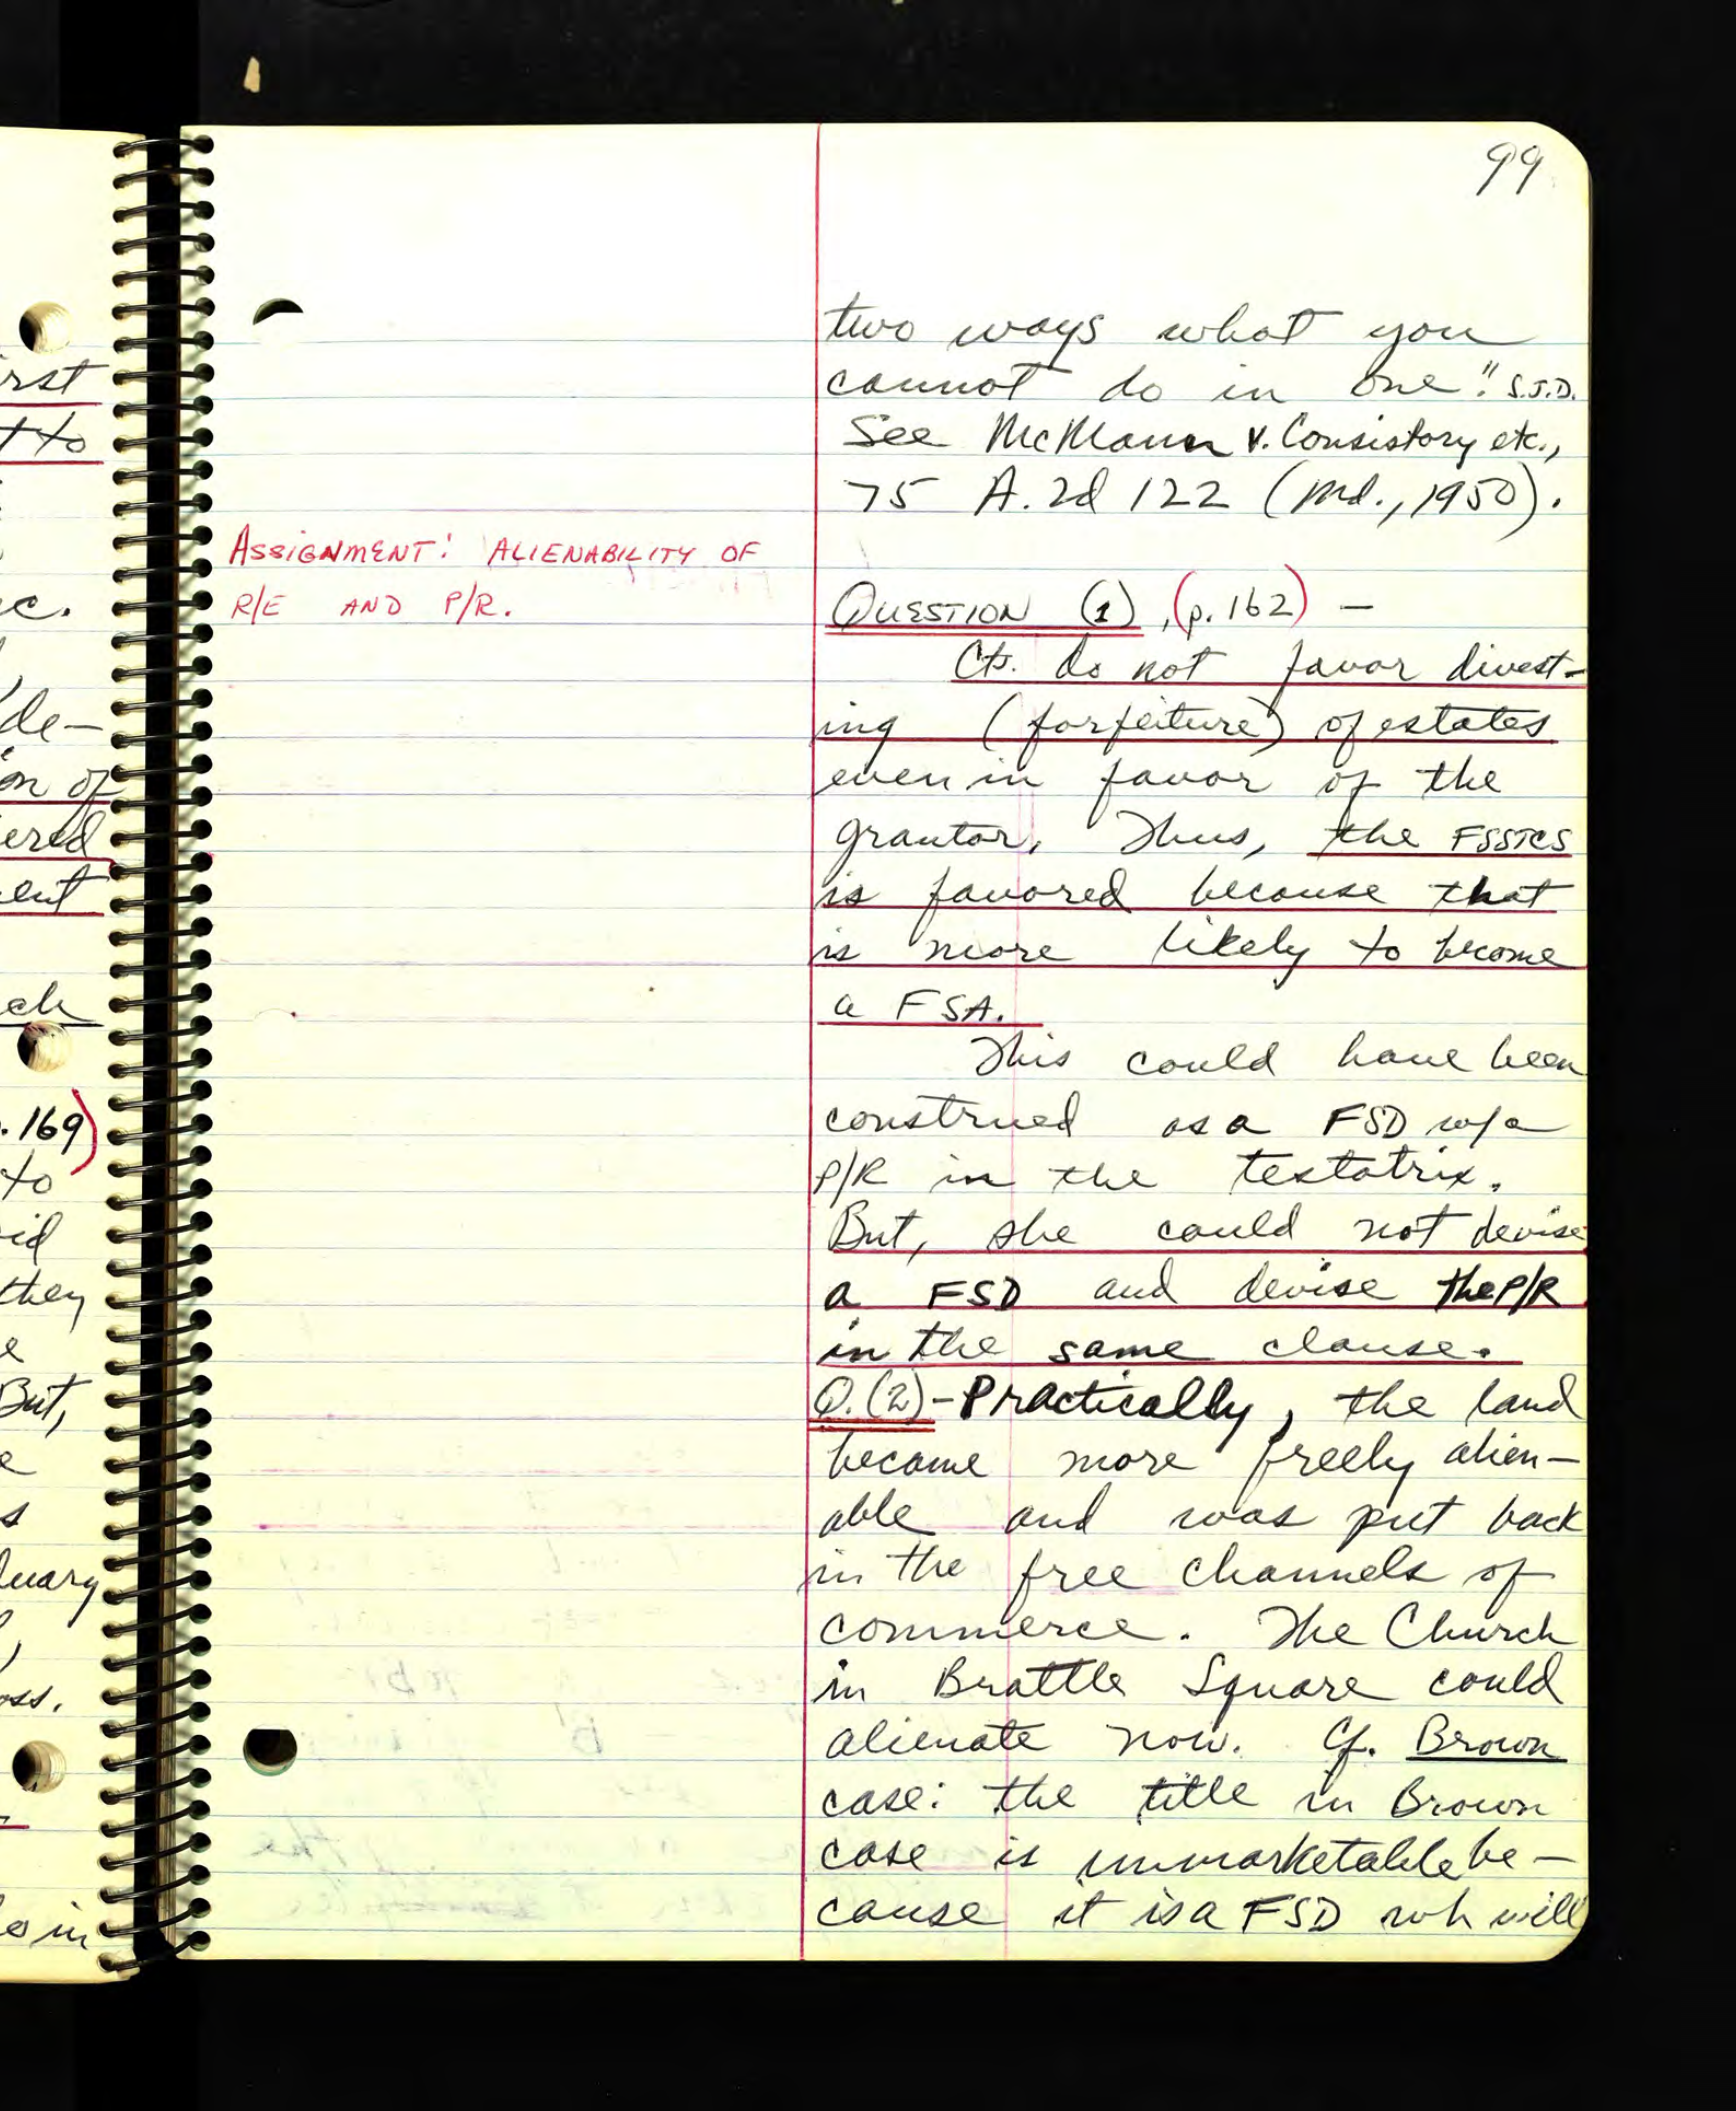 rst
t to
c.
de-
on of
ered
ent
ch
. 169)
to
id
they
e
But,
e
s
uary
oss.
o in
99
two ways what you
cannot do in one." S.J.D.
See McMann v. Consistory etc.,
75 A.2d 122 (Md., 1950).
ASSIGNMENT: ALIENABILITY OF
R/E AND P/R.
QUESTION (1), (p. 162) —
Cts. do not favor divest-
ing (forfeiture) of estates
even in favor of the
grantor. Thus, the FSSTCS
is favored because that
is more likely to become
a FSA.
This could have been
construed as a FSD w/a
P/R in the testatrix.
But, she could not devise
a FSD and devise the P/R
in the same clause.
Q.(2)-Practically, the land
became more freely alien-
able and was put back
in the free channels of
commerce. The Church
in Brattle Square could
alienate now. Cf. Brown
case: the title in Brown
case is unmarketable be-
cause it is a FSD wh will